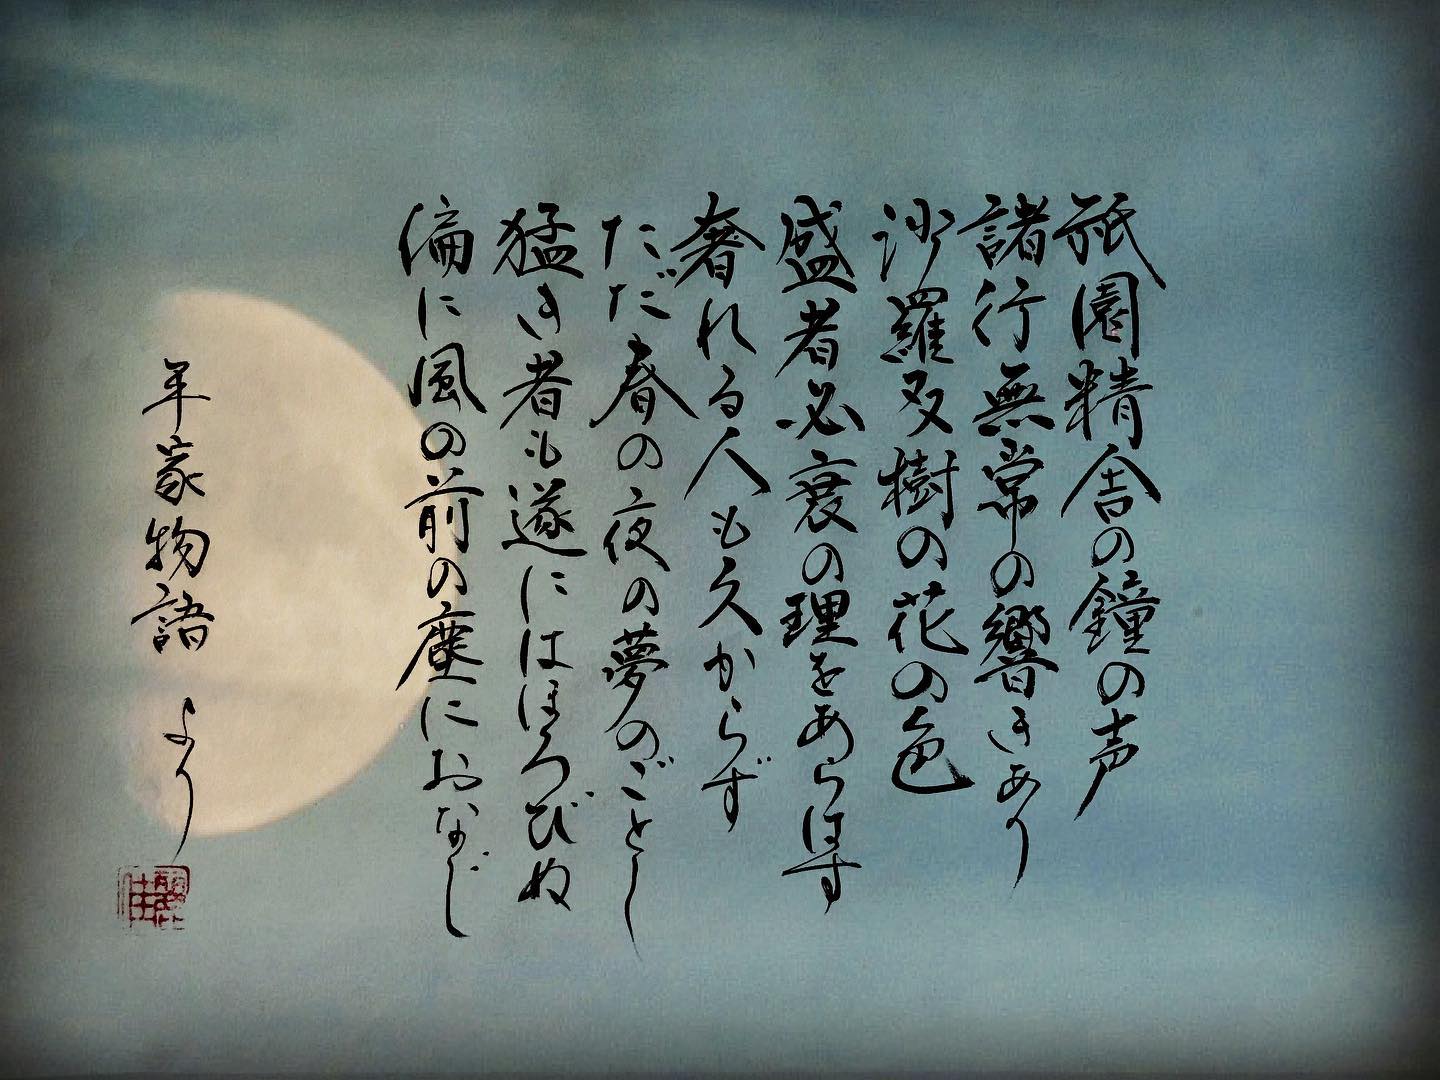 祇園精舎の鐘の声
諸行無常の響きあり
沙羅双樹の花の色
盛者必衰の理をあらはす
奢れる人も久からず
ただ春の夜の夢のごとし
猛き者も遂にはほろびぬ
偏に風の前の塵におなじ
平家物語 より